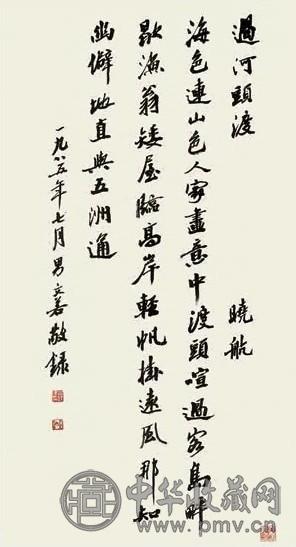 過河頭渡 曉航
海色連山色人家畫意中渡頭喧過客島畔
歇漁翁矮屋臨高岸輕帆掛遠風那知
幽僻地直與五洲通
一九八五年七月男敬錄
中华收藏网
www.pmv.cn